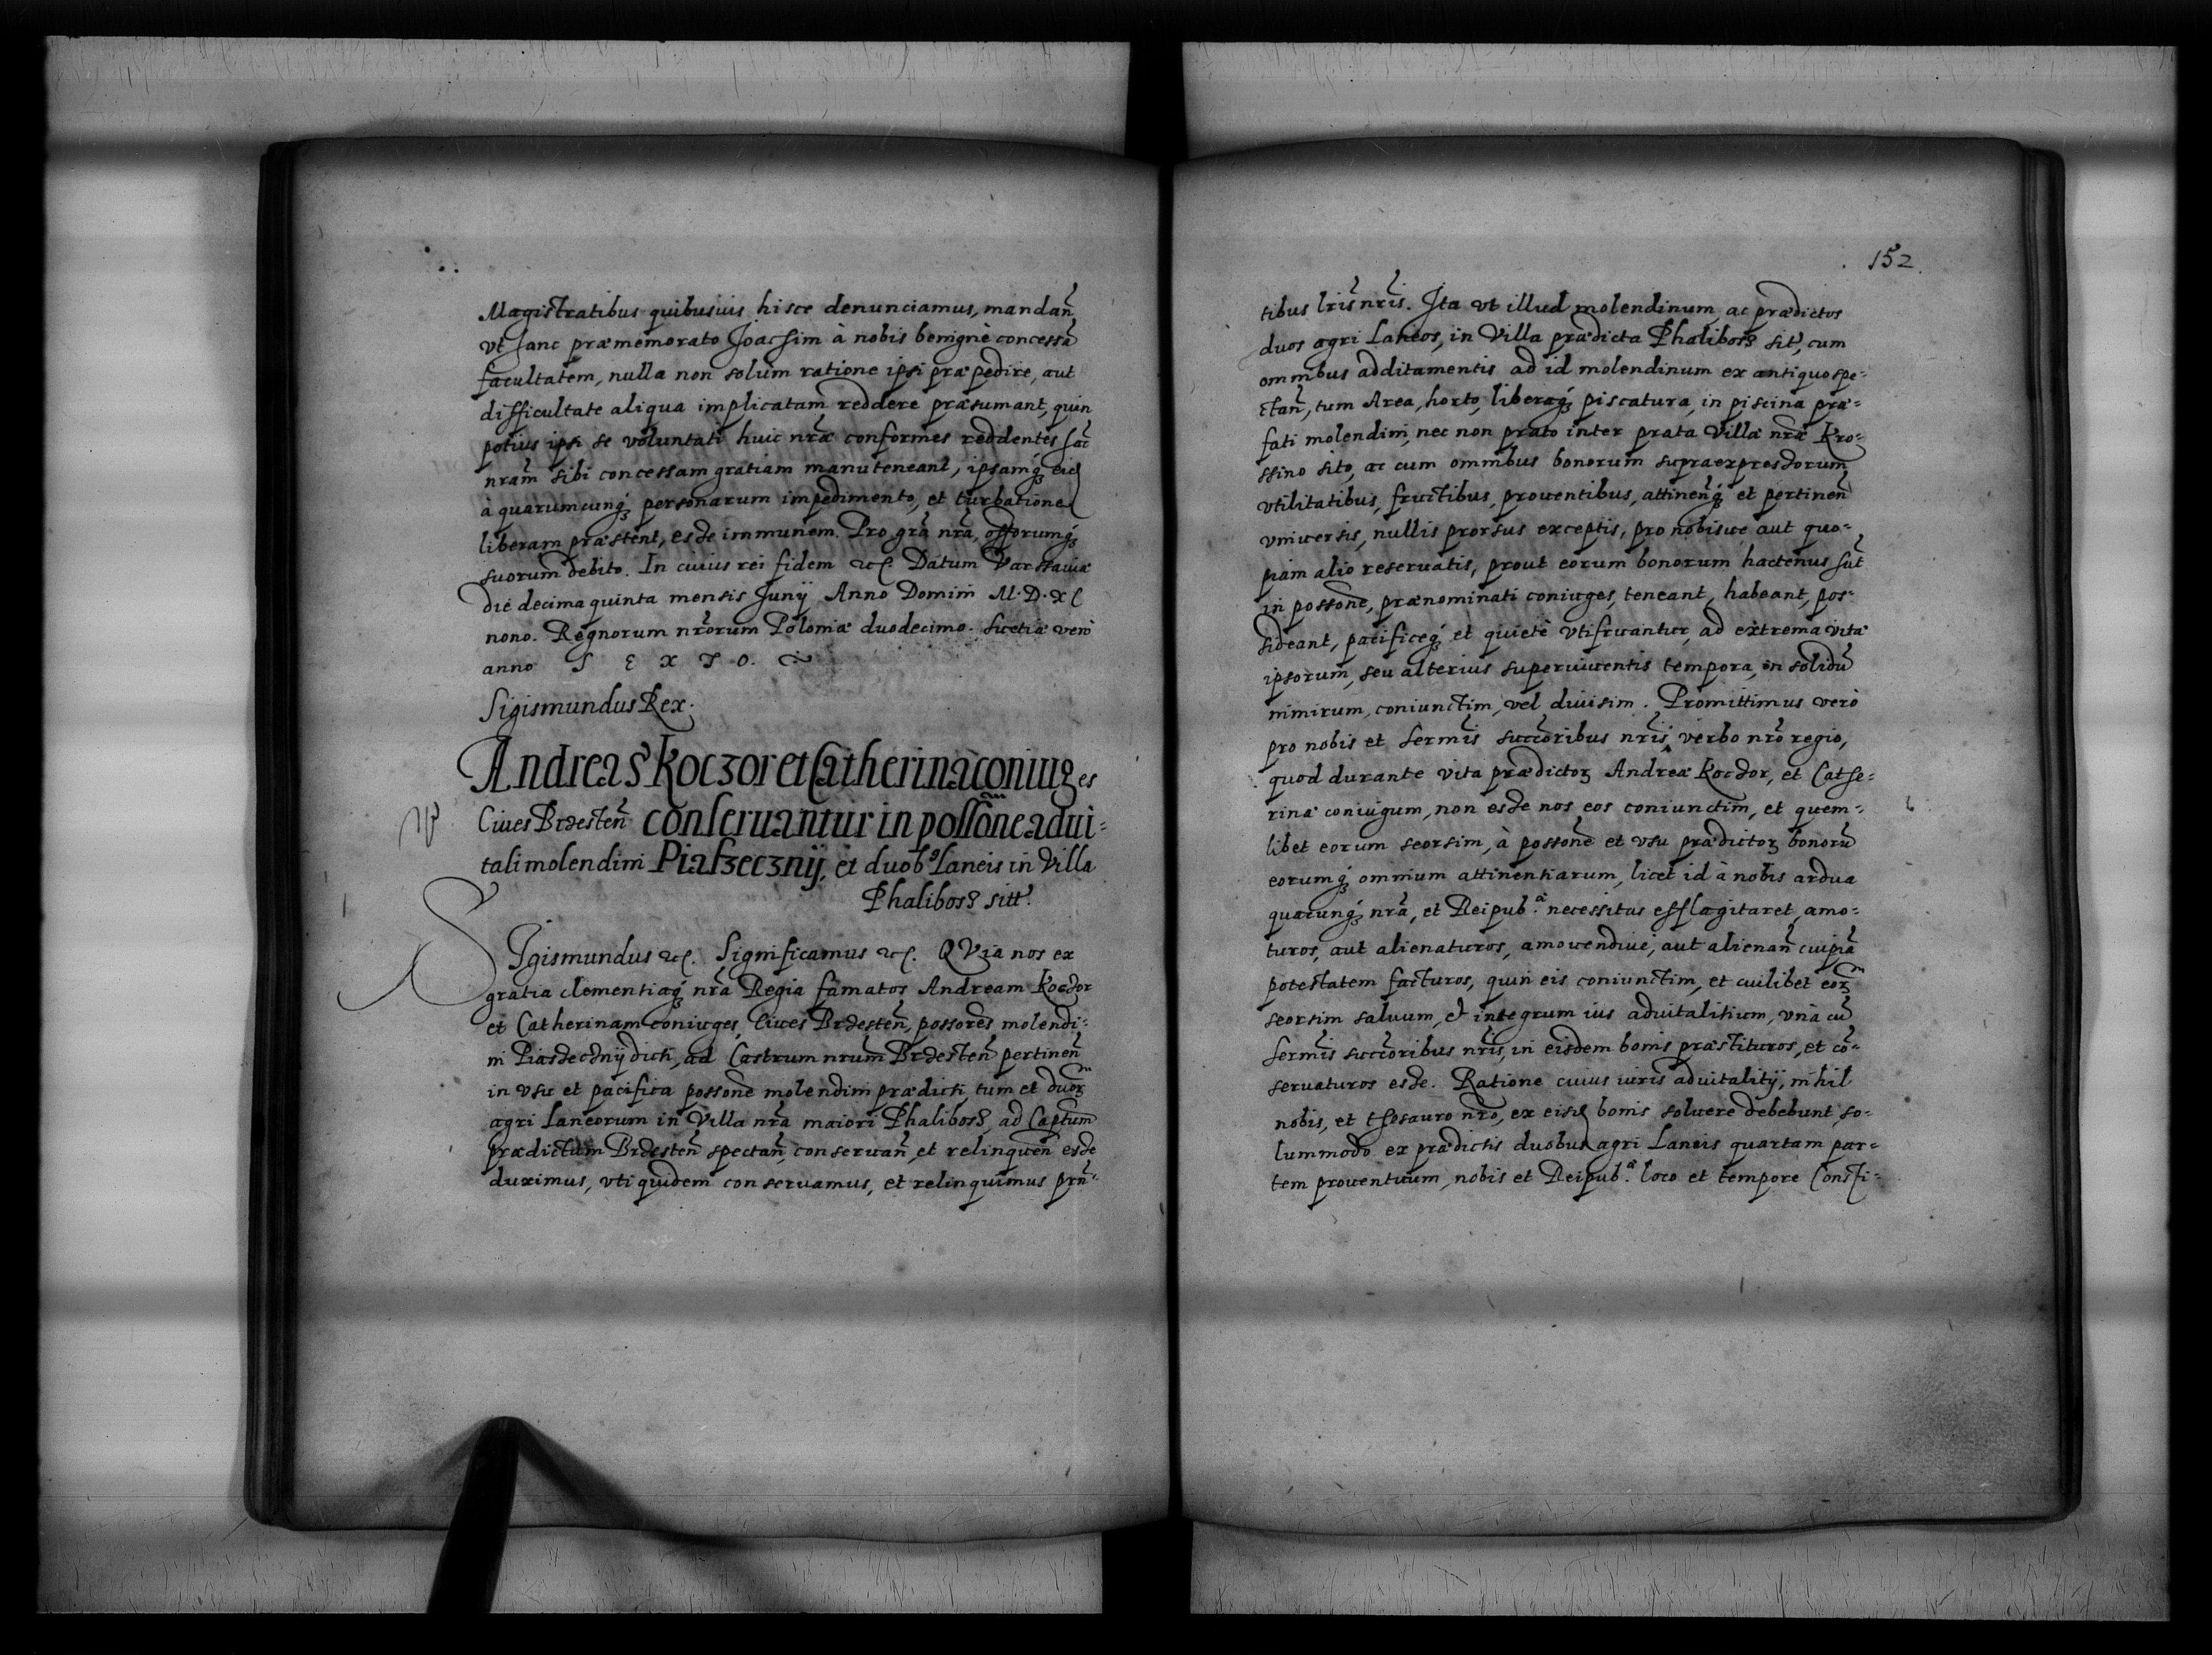 Magistratibus quibusuis hisce denunciamus, mandañ
vt hanc præmemorato Joachim à nobis benignè concessã
facultatem, nulla non solum ratione ipsi præpedire, aut
difficultate aliqua implicatam reddere præsumant, quin
potius ipsi se voluntati huic nr̃æ conformes reddentes hãc
nr̃am sibi concessam gratiam manuteneant, ipsamq́ȝ
à quarumcunq́ȝ personarum impedimento, et turbatione
liberam præstent, esse immunem. Pro gr̃a nr̃a, offorumq́ȝ
suorum debito. In cuius rei fidem etc. Datum Varssauiæ
die decima quinta mensis Junij Anno Domini M.D.XC
nono. Regnorum nr̃orum Poloniæ duodecimo. Suetiæ verò
anno S E X T O.
Sigismundus Rex.
Andreas Koczor et Catherina coniuges
Ciues Brzesteñ conseruantur in possõne adui-
tali molendini Piaseczny, et duobꝰ Laneis in Villa
Phalibor̃ sitt.
SIgismundus etc. Significamus etc. QVia nos ex
gratia clementiaq́ȝ nr̃a Regia famatos Andream Koczor
et Catherinam coniuges, Ciues Brzesteñ, possores molendi-
ni Piaseczny dicti, ad Castrum nr̃um Brzesteñ pertineñ
in vsu et pacifica possone molendini prædicti, tum et duorȝ
agri Laneorum in Villa nr̃a maiori Phalibor̃, ad Captum
prædictum Brzesteñ spectañ, conseruañ, et relinqueñ esse
duximus, vti quidem conseruamus, et relinquimus præñ-
152
tibus lr̃is nr̃is. Jta vt illud molendinum, ac prædictos
duos agri Laneos, in Villa prædicta Phalibor̃ sit̃, cum
omnibus additamentis ad id molendinum ex antiquo spe-
ctañ, tum Area, horto, liberaq́ȝ piscatura, in piscina præ-
fati molendini, nec non prato inter prata Villæ nr̃æ Kro-
ssino sito, ac cum omnibus bonorum supraexpressorum
vtilitatibus, fructibus, prouentibus, attineñq́ȝ et pertineñ
vniuersis, nullis prorsus exceptis, pro nobisue, aut quo-
piam alio reseruatis, prout eorum bonorum hactenus sũt
in possone, prænominati coniuges, teneant, habeant, pos-
sideant, pacificeq́ȝ et quietè vtifruantur, ad extrema vitæ
ipsorum, seu alterius superuiuentis tempora, in solidũ
nimirum, coniunctim, vel diuisim. Promittimus verò
pro nobis et Sermis̃ succõribus nr̃is, verbo nr̃o regio,
quod durante vita prædictorȝ Andreæ Koczor, et Cathe-
rinæ coniugum, non esse nos eos coniunctim, et quem-
libet eorum seorsim, à possone et vsu prædictorȝ bonorũ
eorumq́ȝ omnium attinentiarum, licet id à nobis ardua
quæcunq́ȝ nr̃a, et Reipub.ᵃᵉ necessitas efflagitaret, amo-
turos, aut alienaturos, amouendiue, aut alienañ cuipiã
potestatem facturos, quin eis coniunctim, et cuilibet eorȝ
seorsim saluum, et integrum ius aduitalitium, vnà cũ
Sermis̃ succõribus nr̃is, in eisdem bonis præstituros, et cõ-
seruaturos esse. Ratione cuius iuris aduitalitij, nihil
nobis, et thesauro nr̃o, ex eisd bonis soluere debebunt, so-
lummodo ex prædictis duobus agri Laneis quartam par-
tem prouentuum, nobis et Reipub.ᵃᵉ loco et tempore Consti-